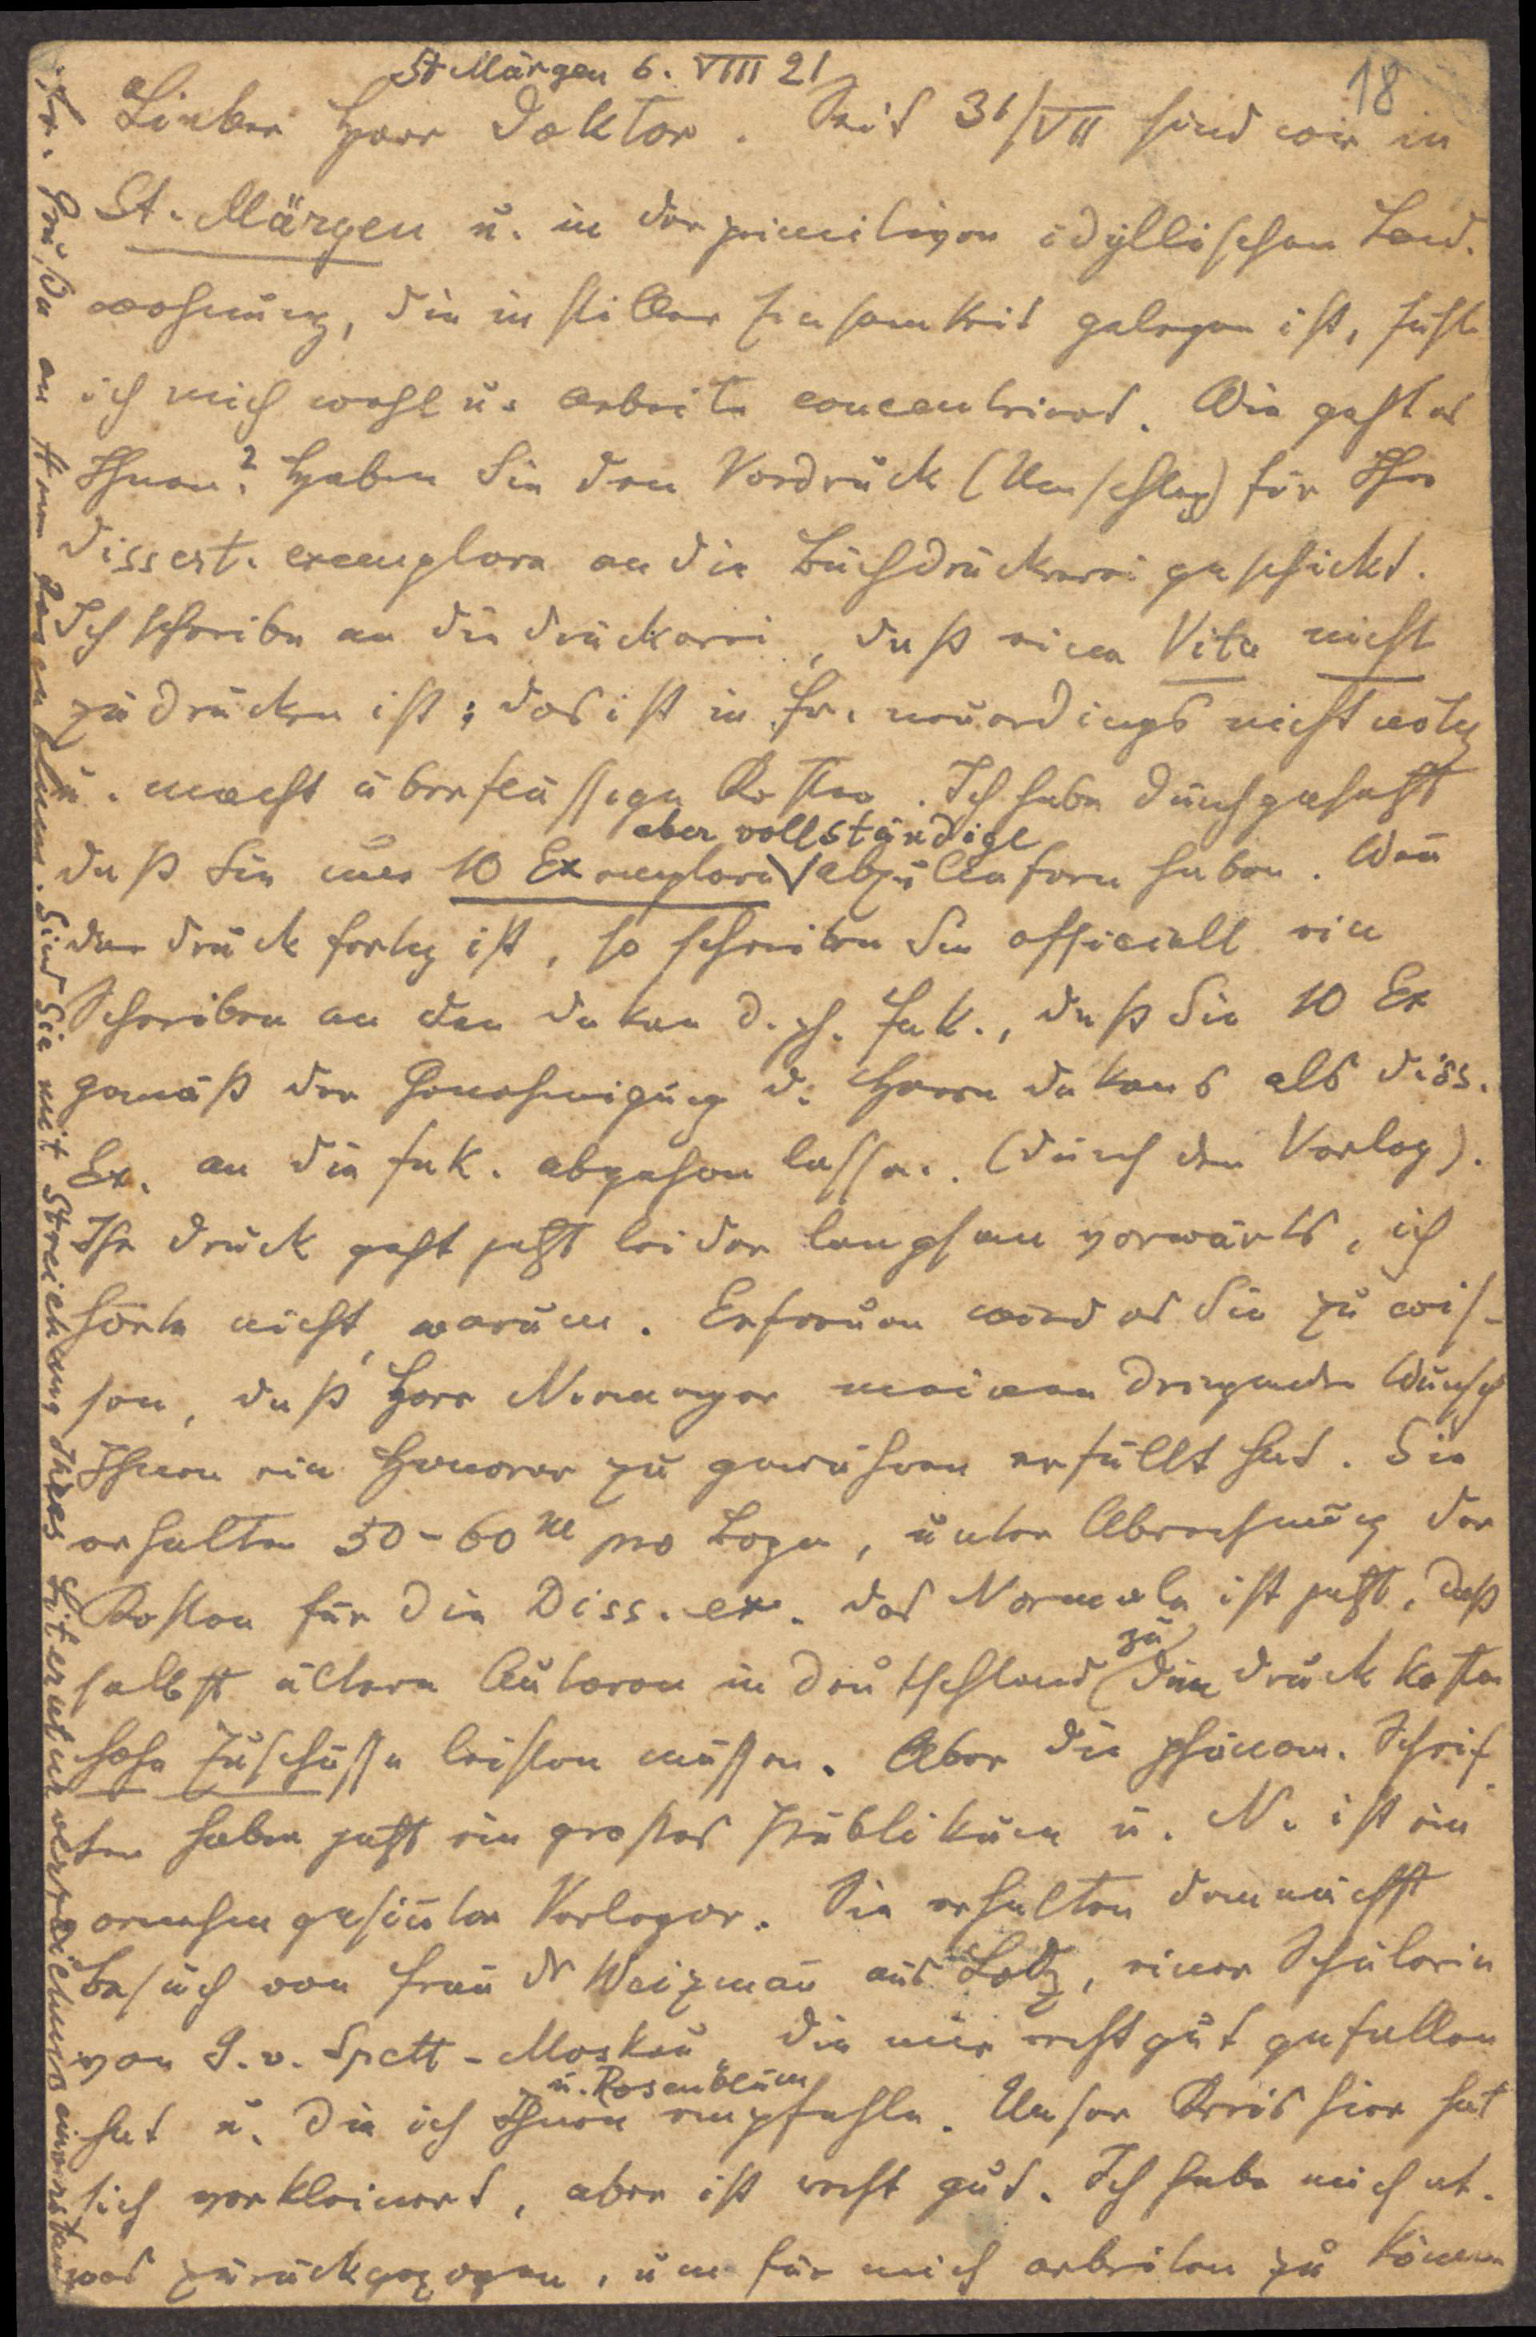 18
St Märgen 6. VIII 21
Lieber Herr Doktor. Seit 31/VII sind wir in
St. Märgen u. in der primitiven idyllischen Land-
wohnung, die in stiller Einsamkeit gelegen ist, fühle
ich mich wohl u. arbeite concentriert. Wie geht es
Ihnen? Haben Sie den Vordruck (Umschlag) für Ihre
Dissert. exemplare an die Buchdruckerei geschickt.
Ich schreibe an die Druckerei, daß eine Vita nicht
zu drucken ist; das ist in Fr. neuerdings nicht nötig
u. macht überflüssige Kosten. Ich habe durchgesetzt
daß Sie nur 10 Exemplare aber vollständige abzuliefern haben. Wenn
der Druck fertig ist, so schreiben Sie officiell ein
Schreiben an den Dekan d. ph. Fak., daß Sie 10 Ex
gemäß der Genehmigung d. Herrn Dekans als Diss.
Ex. an die Fak. abgehen lassen. (durch den Verlag).
Ihr Druck geht jetzt leider langsam vorwärts, ich
hörte nicht, warum. Erfreuen wird es Sie zu wis-
sen, daß Herr Niemeyer meinen dringenden Wunsch
Ihnen ein Honorar zu gewähren erfüllt hat. Sie
erhalten 50-60 M pro Bogen, unter Abrechnung der
Kosten für die Diss. ex. Das Normale ist jetzt, daß
selbst ältere Autoren in Deutschland zu den Druckkosten
hohe Zuschüsse leisten müssen. Aber die phänom. Schrif-
ten haben jetzt ein großes Publikum u. N. ist ein
vornehm gesinnter Verleger. Sie erhalten demnächst
Besuch von Frau Dr Weizman aus Lodz, einer Schülerin
von G. v. Spett-Moskau, die mir recht gut gefallen
hat u. die ich Ihnen u. Rosenblum empfehle. Unser Kreis hier hat
sich verkleinert, aber ist recht gut. Ich habe mich et-
was zurückgezogen, um für mich arbeiten zu können
Hr. Grüße an Herrn Rosenblum. Sind Sie mit Streichung Ihres Literaturverzeichniss einverstanden